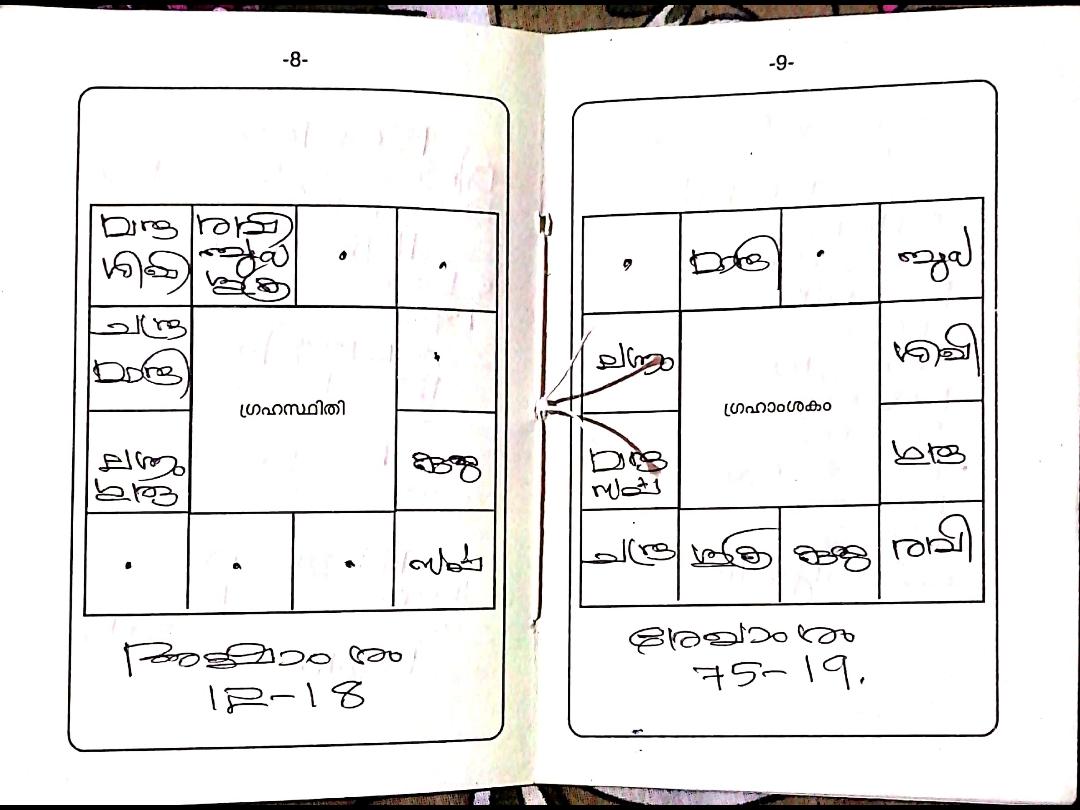 -8-
മന്ദ
ശിഖി
രവി
ബുധ
ശുക്ര
ചന്ദ്ര
മാന്ദി
ഗ്രഹസ്ഥിതി
ലഗ്നം
ഗുരു
കുജ
സർപ്പ
18-18
-9-
മാന്ദി
ബുധ
ലഗ്നം
ശിഖി
ഗ്രഹാംശകം
മന്ദ
സർപ്പ
ഗുരു
ചന്ദ്ര
ശുക്ര
കുജ
രവി
75-19.